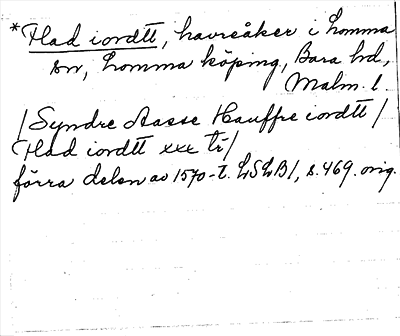 *Flad iordtt, havreåker i Lomma
sn, Lomma köping, Bara hd,
Malm. l.
/Syndre Aasse Hauffre iordtt/
Flad iordtt xxx tr/
förra delen av 1570-t. LSLB/, s. 469. orig.